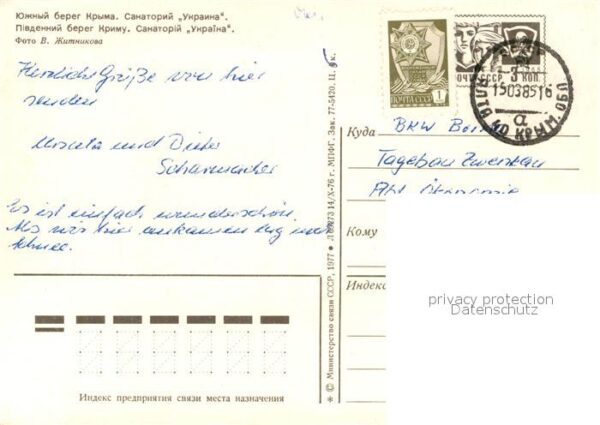 Южный берег Крыма. Санаторий „Украина“.
Південний берег Криму. Санаторій „Україна“.
Фото В. Житникова
Herzliche Grüße von hier
senden
Ursula und Dieter
Es ist einfach wunderschön.
Als wir hier ankamen lag noch
Schnee.
Индекс предприятия связи места назначения
* © Министерство связи СССР, 1977 ● 14/X-76 г. МПФГ. Зак. 77-5420. Ц. к.
ПОЧТА СССР 1
ПОЧТА СССР 3 КОП.
15038516
ЯЛТА КРЫМ. ОБЛ
а
Куда BKW
Tagebau Zwenkau
Abt. Ökonomie
Кому
Индекс
privacy protection
Datenschutz